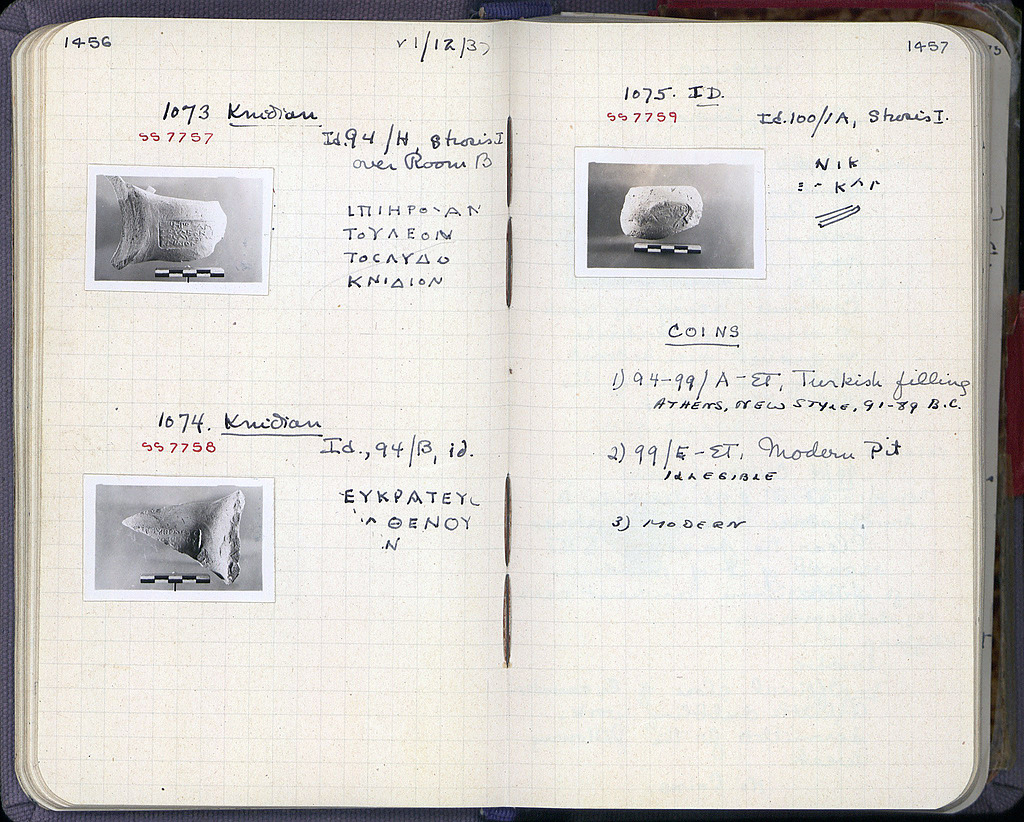 1456
1/12/37
1073 Knidian
SS 7757
Id. 94/H, Strosis I
over Room B
ΤΟΥΛΕΟΝ
ΚΝΙΔΙΟΝ
1074. Knidian
SS 7758
Id., 94/B, id.
ΕΥΚΡΑΤΕΥ
ΘΕΝΟΥ
Ν
1457
1075. ID.
SS 7759
Id. 100/ΙΑ, Strosis I.
ΝΙΚ
COINS
1) 94-99/A-ΣΤ, Turkish filling
ATHENS, NEW STYLE, 91-89 B.C.
2) 99/E-ΣΤ, Modern Pit
ILLEGIBLE
3) MODERN